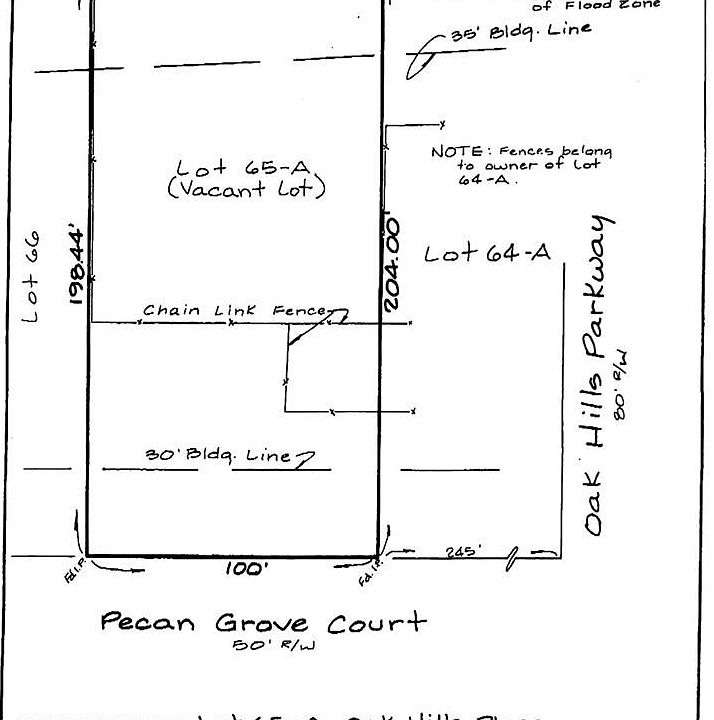 of Flood Zone
35' Bldg. Line
NOTE: Fences belong
to owner of Lot
64-A.
Lot 65-A
(Vacant Lot)
Lot 66
198.44'
204.00'
Lot 64-A
Oak Hills Parkway
80' R/W
Chain Link Fence
30' Bldg. Line
Fd. I.P.
100'
Fd. I.P.
245'
Pecan Grove Court
50' R/W
Lot 65-A, Oak Hills Place